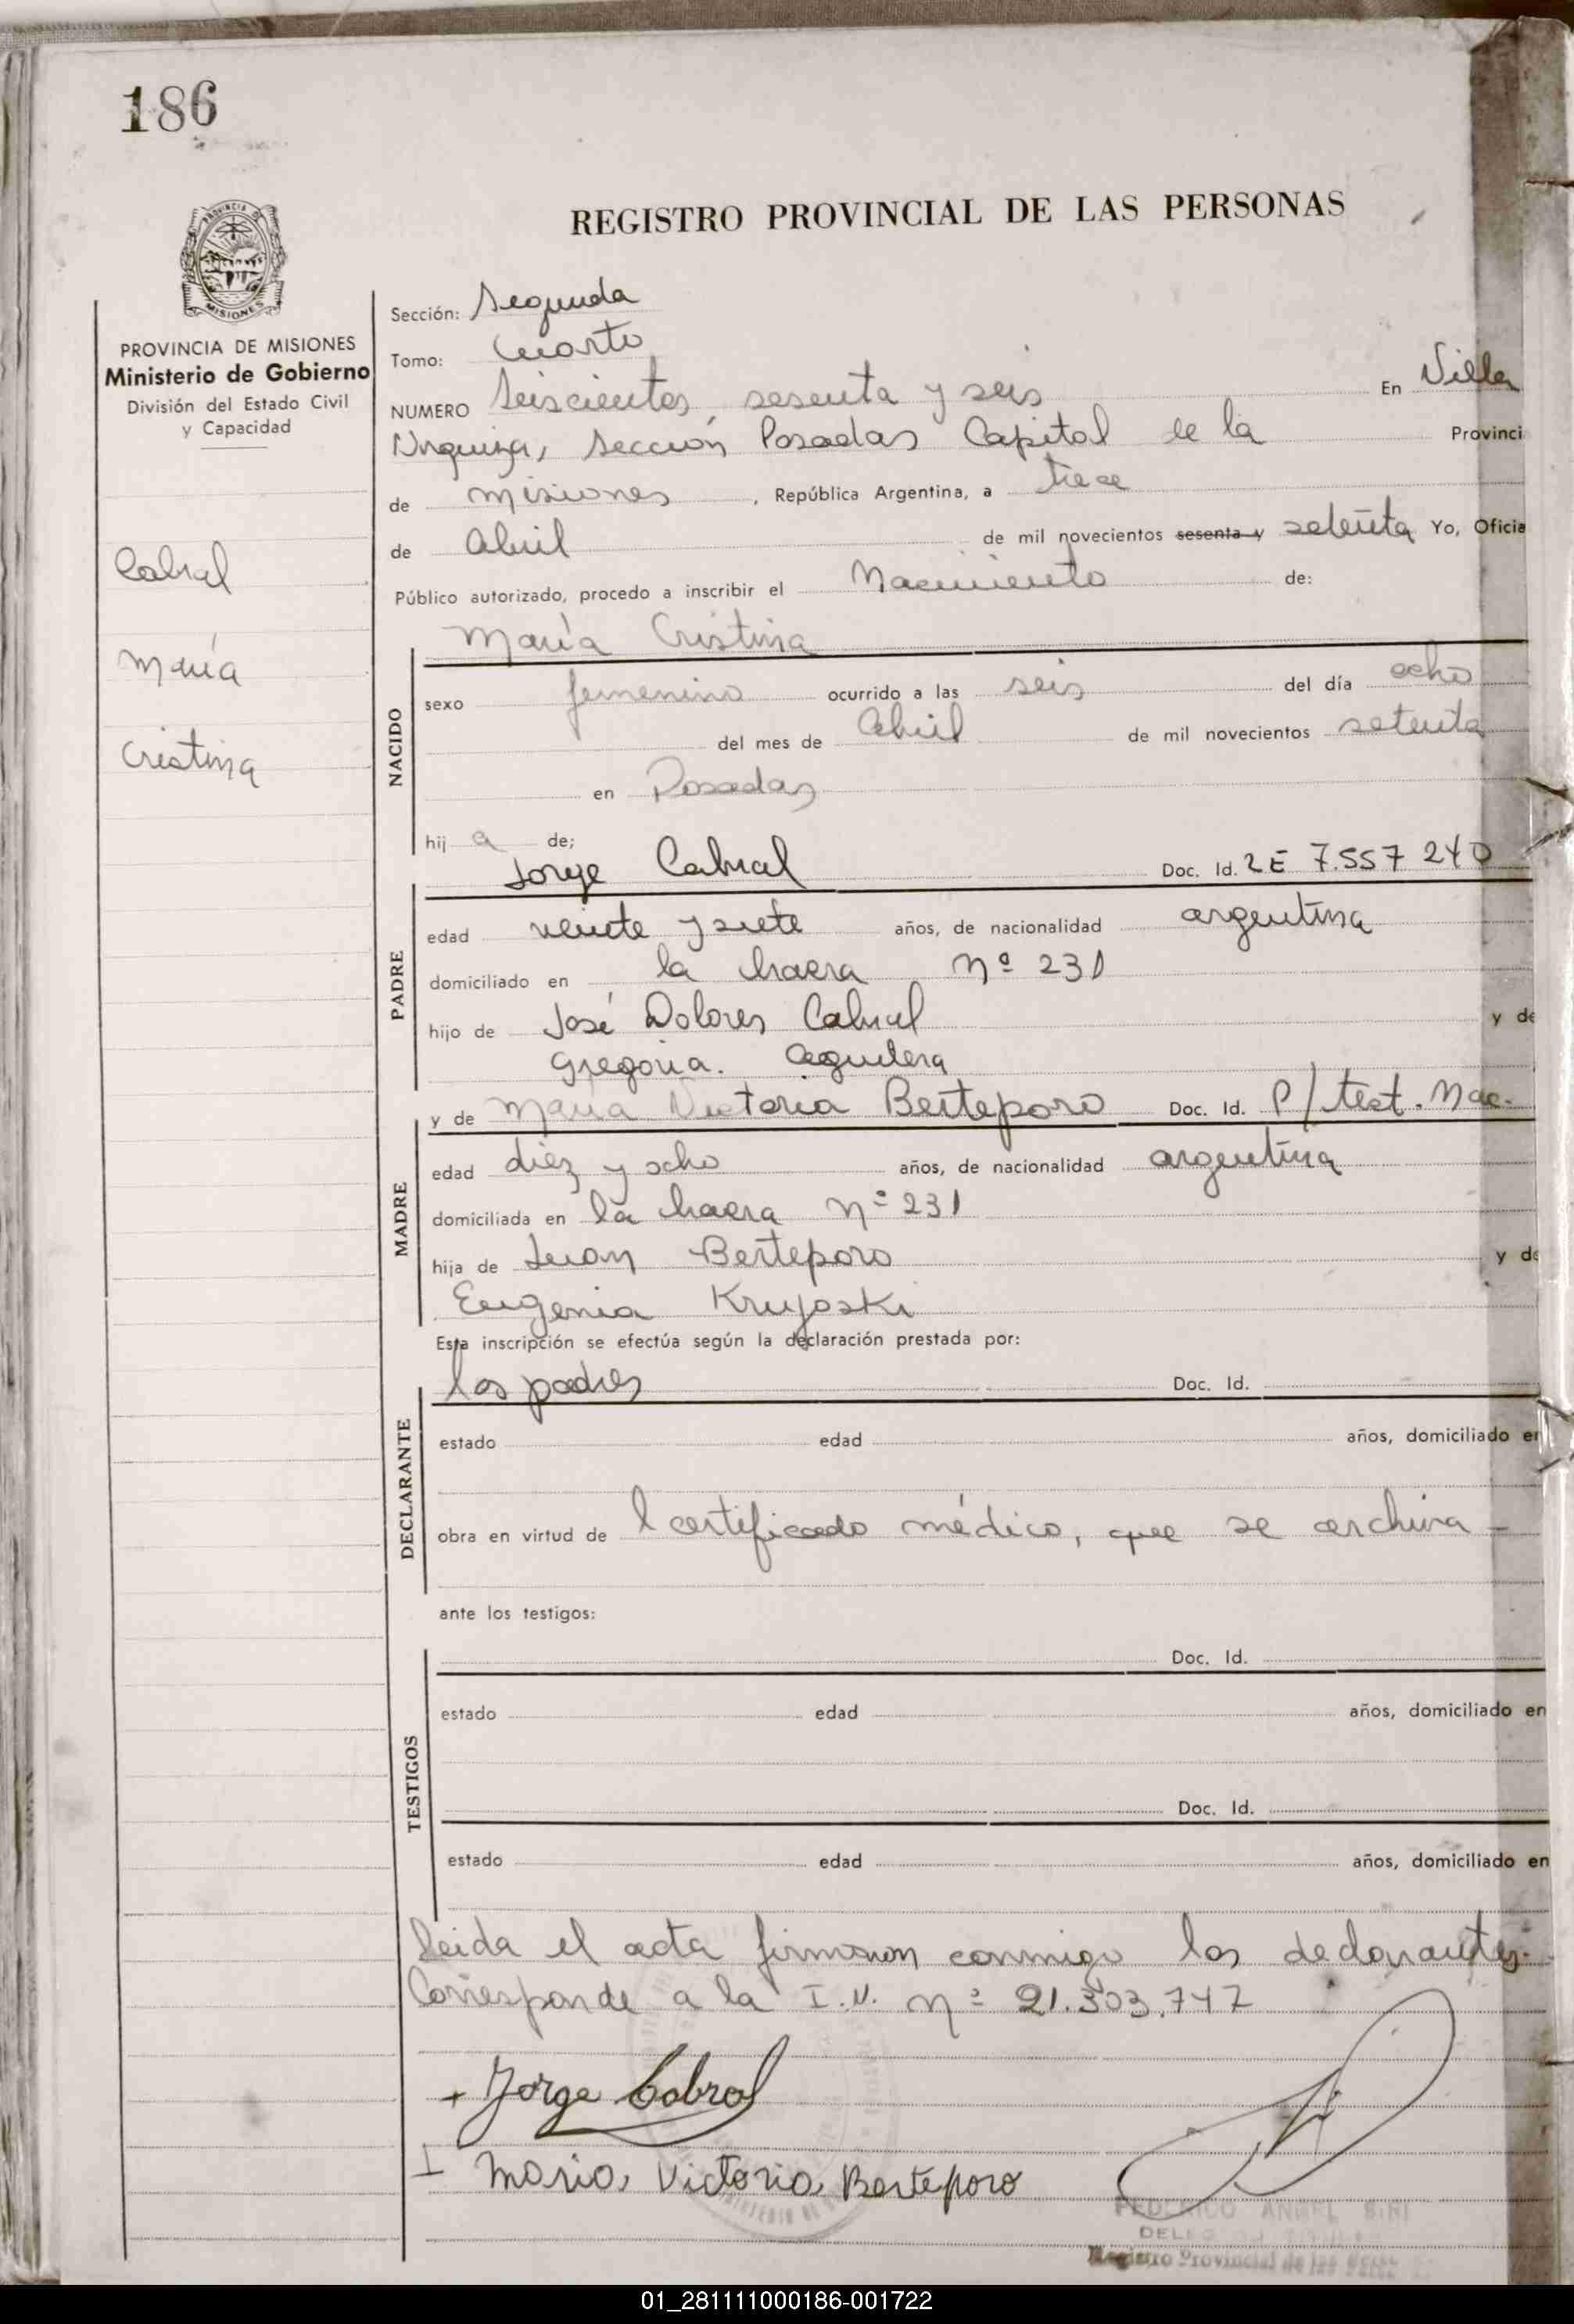 186
REGISTRO PROVINCIAL DE LAS PERSONAS
MISIONES
PROVINCIA DE MISIONES
Ministerio de Gobierno
División del Estado Civil
y Capacidad
Cabral
María
Cristina
Sección: Segunda
Tomo: Cuarto
NUMERO Seiscientos sesenta y seis En Villa
Urquiza, Sección Posadas Capital de la Provinci
de misiones, República Argentina, a trece
de Abril de mil novecientos sesenta y setenta Yo, Oficia
Público autorizado, procedo a inscribir el Nacimiento de:
NACIDO
María Cristina
sexo femenino ocurrido a las seis del día ocho
del mes de Abril de mil novecientos setenta
en Posadas
hij a de;
PADRE
Jorge Cabral Doc. Id. LE 7.557 240
edad veinte y siete años, de nacionalidad argentina
domiciliado en la chacra nº 231
hijo de José Dolores Cabral y de
Gregoria. Aguilera
y de María Victoria Berteporo Doc. Id. P/test. Nac.
MADRE
edad diez y ocho años, de nacionalidad argentina
domiciliada en la chacra nº 231
hija de Juan Berteporo y de
Eugenia Krujoski
Esta inscripción se efectúa según la declaración prestada por:
DECLARANTE
los padres Doc. Id.
estado edad años, domiciliado en
obra en virtud de l certificado médico, que se archiva -
ante los testigos:
TESTIGOS
Doc. Id.
estado edad años, domiciliado en
Doc. Id.
estado edad años, domiciliado en
Leida el acta firmaron conmigo los declarantes.
Corresponde a la I.N. nº 21.303.747
Jorge Cabral
Maria Victoria Berteporo
FEDERICO ANGEL
Registro Provincial de las
01_281111000186-001722